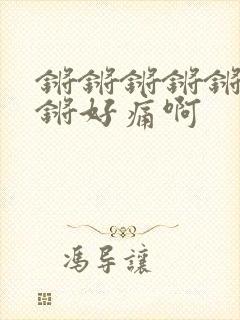 锵锵锵锵锵
锵好痛啊
冯导讓